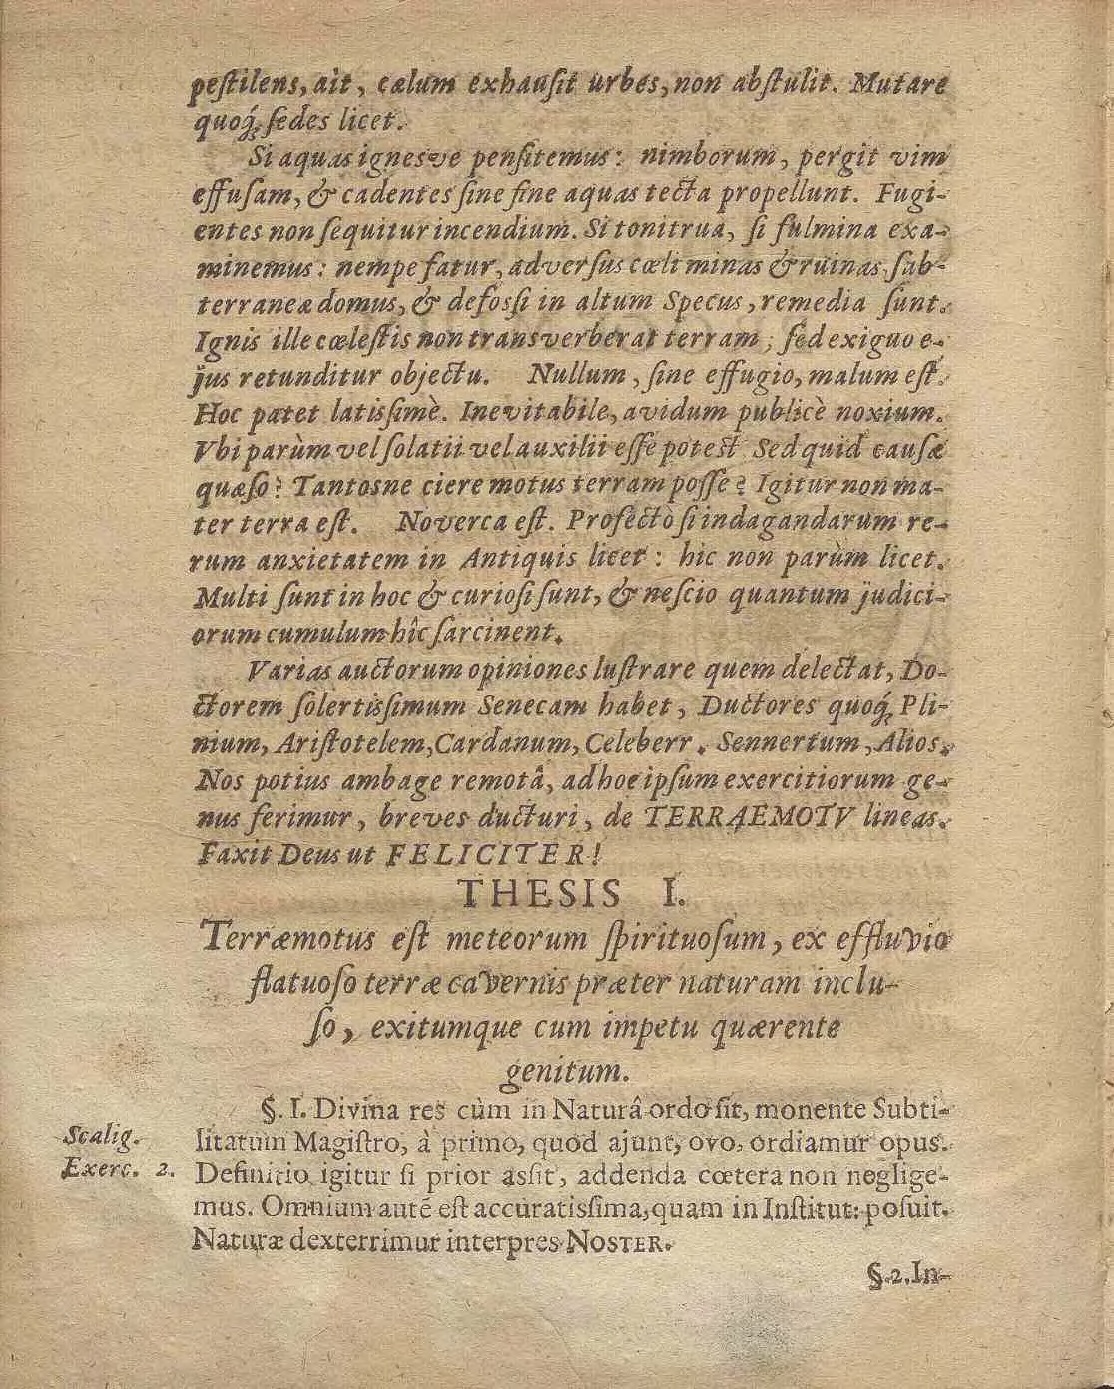 peſtilens, ait, cælum exhauſit urbes, non abſtulit. Mutare
quoq́; ſedes licet.
Si aquas ignesve penſitemus: nimborum, pergit vim
effuſam, & cadentes ſine fine aquas tecta propellunt. Fugi-
entes non ſequitur incendium. Si tonitrua, ſi fulmina exa-
minemus: nempe fatur, adverſus cœli minas & ruinas, ſub-
terraneæ domus, & defoſſi in altum Specus, remedia ſunt.
Ignis ille cœleſtis non transverberat terram; ſed exiguo e-
jus retunditur objectu. Nullum, ſine effugio, malum eſt.
Hoc patet latisſimè. Inevitabile, avidum publicè noxium.
Vbi parùm vel ſolatii vel auxilii eſſe poteſt Sed quid cauſæ
quæſo? Tantosne ciere motus terram poſſe? Igitur non ma-
ter terra eſt. Noverca eſt. Profectò ſi indagandarum re-
rum anxietatem in Antiquis licet: hic non parùm licet.
Multi ſunt in hoc & curioſi ſunt, & neſcio quantum judici-
orum cumulum hîc ſarcinent.
Varias auctorum opiniones luſtrare quem delectat, Do-
ctorem ſolertisſimum Senecam habet, Ductores quoq́; Pli-
nium, Ariſtotelem, Cardanum, Celeberr. Sennertum, Alios.
Nos potius ambage remotâ, ad hoc ipſum exercitiorum ge-
nus ferimur, breves ducturi, de TERRAEMOTV lineas.
Faxit Deus ut FELICITER!
THESIS I.
Terræmotus eſt meteorum ſpirituoſum, ex effluvio
flatuoſo terræ cavernis præter naturam inclu-
ſo, exitumque cum impetu quærente
genitum.
§. I. Divina res cùm in Naturâ ordo ſit, monente Subti-
Scalig. litatum Magiſtro, à primo, quod ajunt, ovo, ordiamur opus.
Exerc. 2. Definitio igitur ſi prior asſit, addenda cœtera non neglige-
mus. Omnium autē eſt accuratisſima, quam in Inſtitut: poſuit.
Naturæ dexterrimur interpres NOSTER.
§. 2. In-